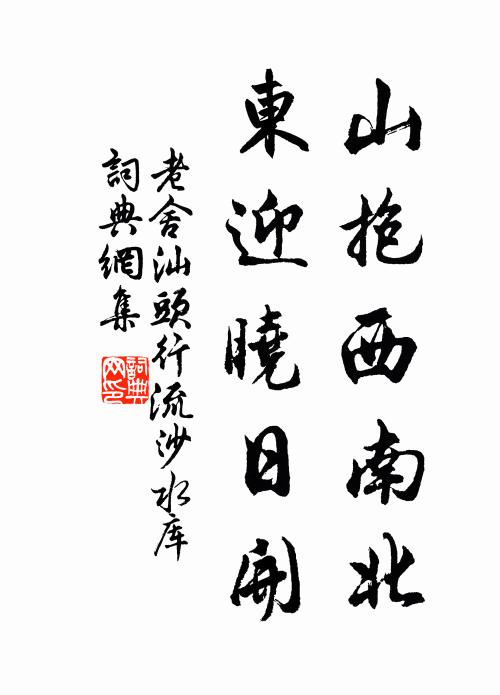 山抱西南北
東迎曉日開
老舍汕頭行流沙水库
詞典網集
詞典网印